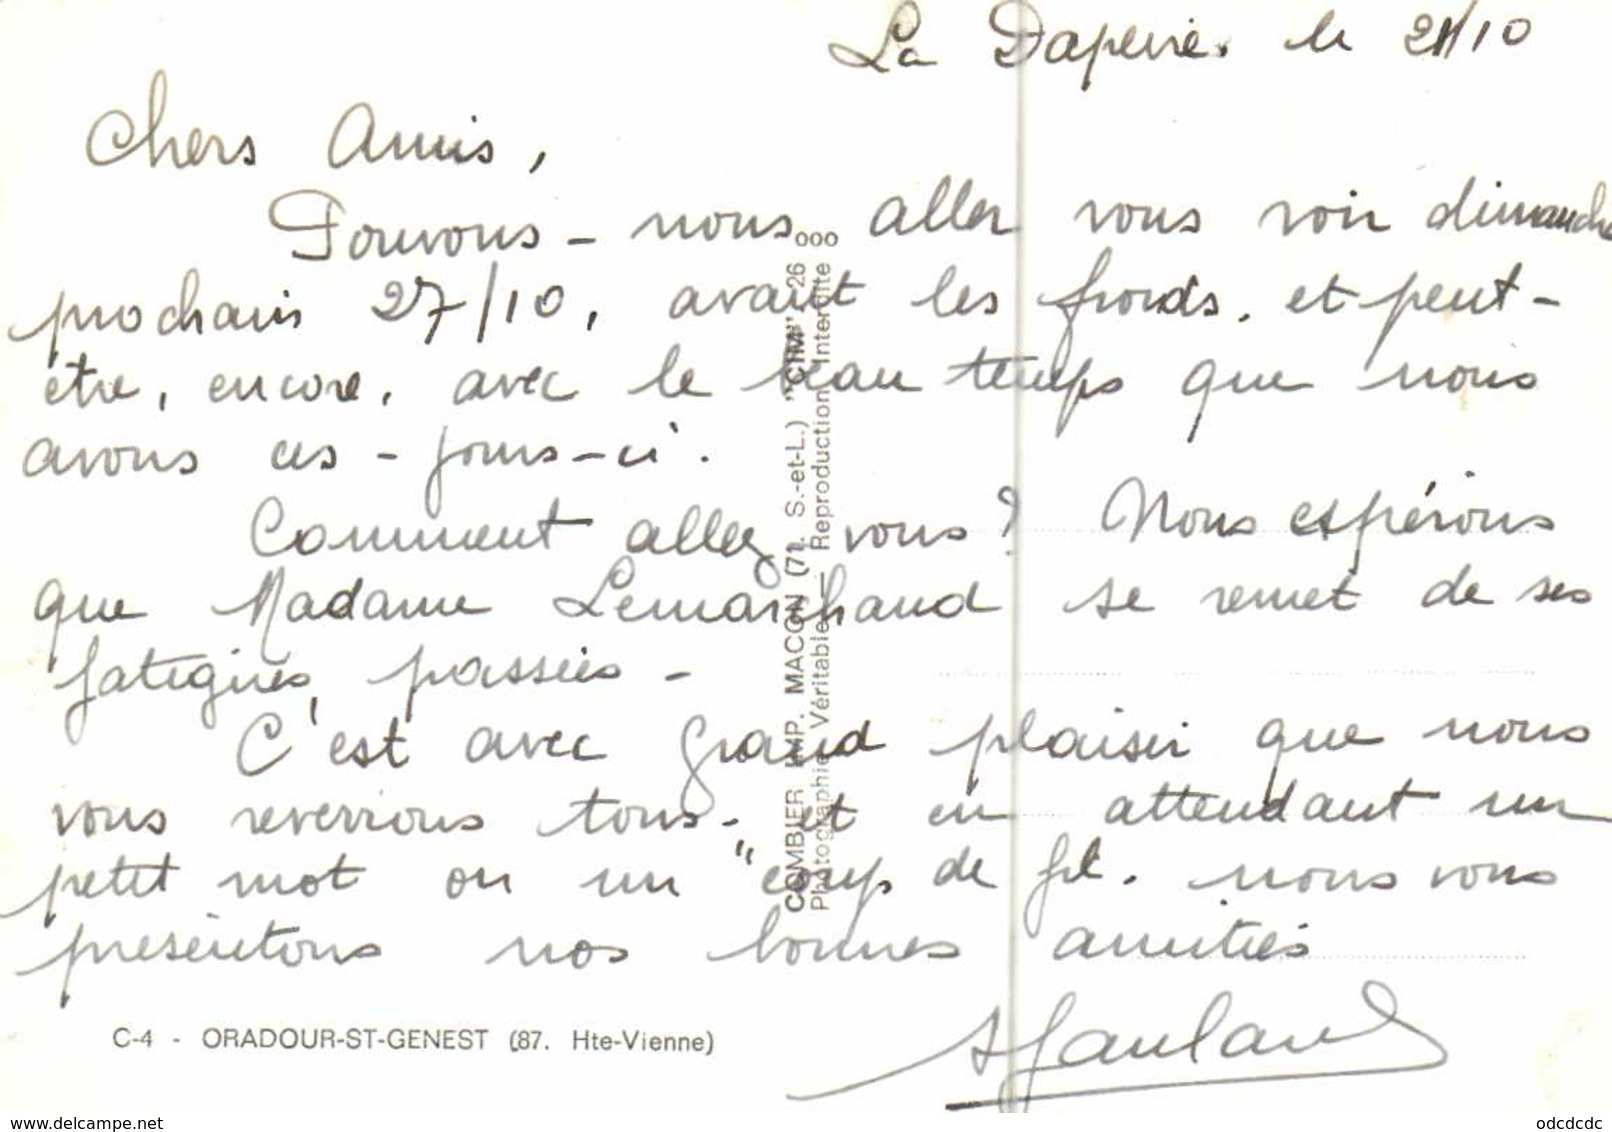 le 21/10
Chers Amis,
Pouvons-nous aller vous voir dimanche
prochain 27/10, avant les froids. et peut-
etre, encore, avec le beau temps que nous
avons ces-jours-ci.
Comment allez vous? Nous espérons
que Madame Lemarchand se remet de ses
fatigues, passées -
C'est avec grand plaisir que nous
vous reverrions tous - et en attendant un
petit mot ou un "coup de fil. nous vous
présentons nos bonnes amitiés
COMBIER IMP. MACON (71. S.-et-L.) "CIM" 26
Photographie Véritable — Reproduction Interdite
C-4 - ORADOUR-ST-GENEST (87. Hte-Vienne)
https://www.delcampe.net
odcdcdc